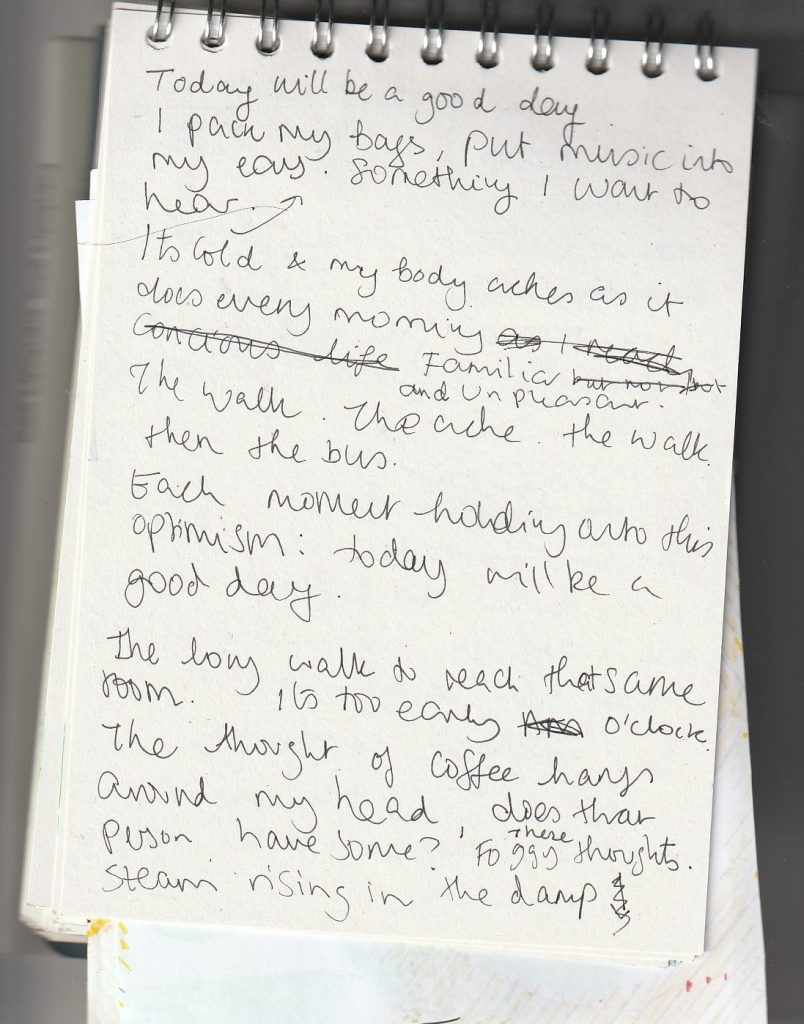 Today will be a good day
I pack my bags, put music into
my ears. Something I want to
hear.
Its Cold & my body aches as it
does every morning as I reach
Concious life Familiar but not
and Unpleasant.
The walk. The ache. the walk.
then the bus.
Each moment holding onto this
optimism: today will be a
good day.
The long walk to reach that same
room. Its too early o'clock.
The thought of coffee hangs
around my head, does that
person have some? There
Foggy thoughts.
Steam rising in the damp